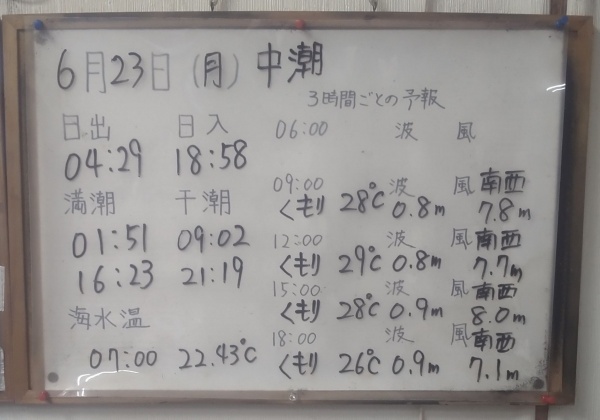 6月23日 (月) 中潮
3時間ごとの予報
日出 日入
04:29 18:58
満潮 干潮
01:51 09:02
16:23 21:19
海水温
07:00 22.43℃
06:00 波 風
09:00 波 風 南西
くもり 28℃ 0.8m 7.8m
12:00 波 風 南西
くもり 29℃ 0.8m 7.7m
15:00 波 風 南西
くもり 28℃ 0.9m 8.0m
18:00 波 風 南西
くもり 26℃ 0.9m 7.1m